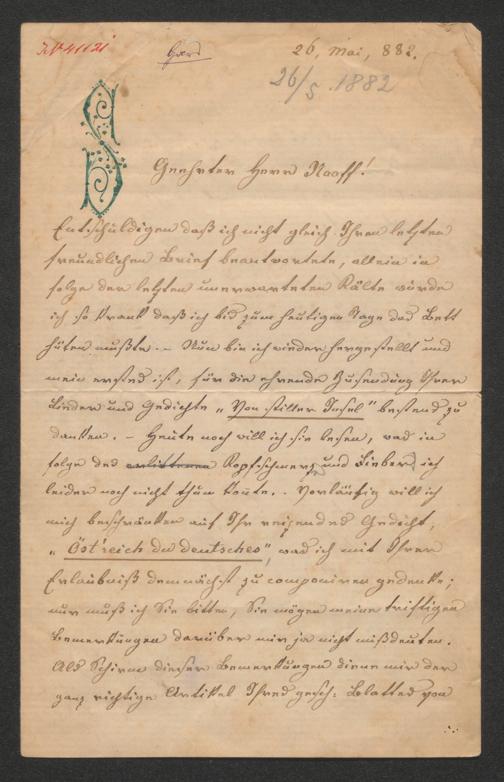 26. Mai, 882.
26/5. 1882
Geehrter Herr Naaff!
Entschuldigen daß ich nicht gleich Ihren letzten
freundlichen Brief beantwortete, allein in
folge der letzten unerwarteten Kälte wurde
ich so krank daß ich bis zum heutigen Tage das Bett
hüten mußte. – Nun bin ich wieder hergestellt und
mein erstes ist, für die ehrende Zusendung Ihrer
Lieder und Gedichte „Von stiller Insel" bestens zu
danken. – Heute noch will ich sie lesen, was in
folge des erlittenen Kopfschmerz und Fieber ich
leider noch nicht thun konte. – Vorläufig will ich
mich beschränken auf Ihr reizendes Gedicht,
„Öst'reich du deutsches", was ich mit Ihrer
Erlaubniß demnächst zu componiren gedenke;
nur muß ich Sie bitten, Sie mögen meine triftigen
Bemerkungen darüber mir ja nicht mißdeuten.
Als Schirm dieser Bemerkungen diene mir der
ganz richtige Artikel Ihres gesch: Blattes von